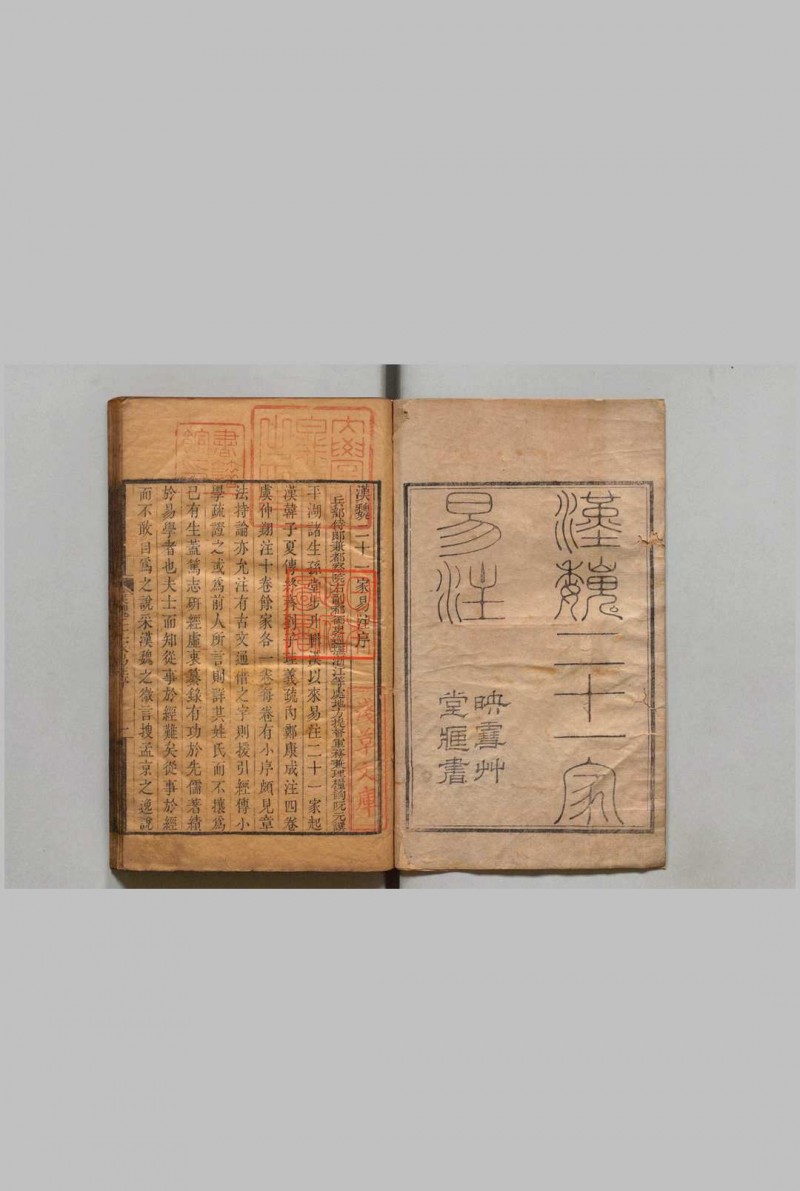 漢魏二十一家
易注
映雪艸
堂藏書
漢魏二十一家易注序
兵部侍郎兼都察院右副都御史巡撫浙江等處地方提督軍務兼理糧餉阮元譔
平湖諸生孫堂步升輯漢以來易注二十一家起
漢韓子夏傳終齊劉子珪義疏內鄭康成注四卷
虞仲翔注十卷餘家各一卷每卷有小序頗見章
法持論亦允注有古文通借之字則援引經傳小
學疏證之或爲前人所言則詳其姓氏而不攘爲
己有生蓋篤志研經虛衷纂錄有功於先儒著績
於易學者也夫士而知從事於經難矣從事於經
而不敢自爲之說采漢魏之微言搜孟京之逸說
淺草文庫
書籍館